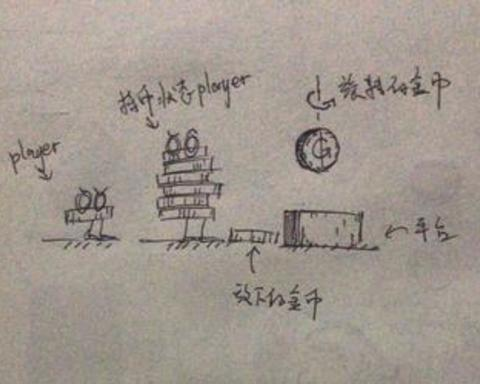 持币状态player
旋转的金币
player
G
平台
放下的金币